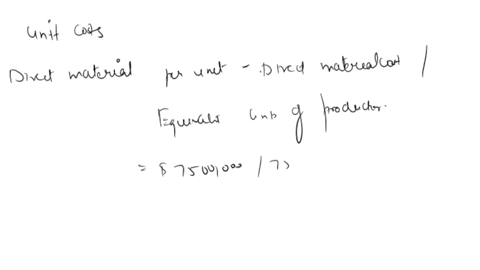 Unit costs
Direct material per unit - Direct material cost /
Equivalent units of production.
= $ 7500,000 / 7